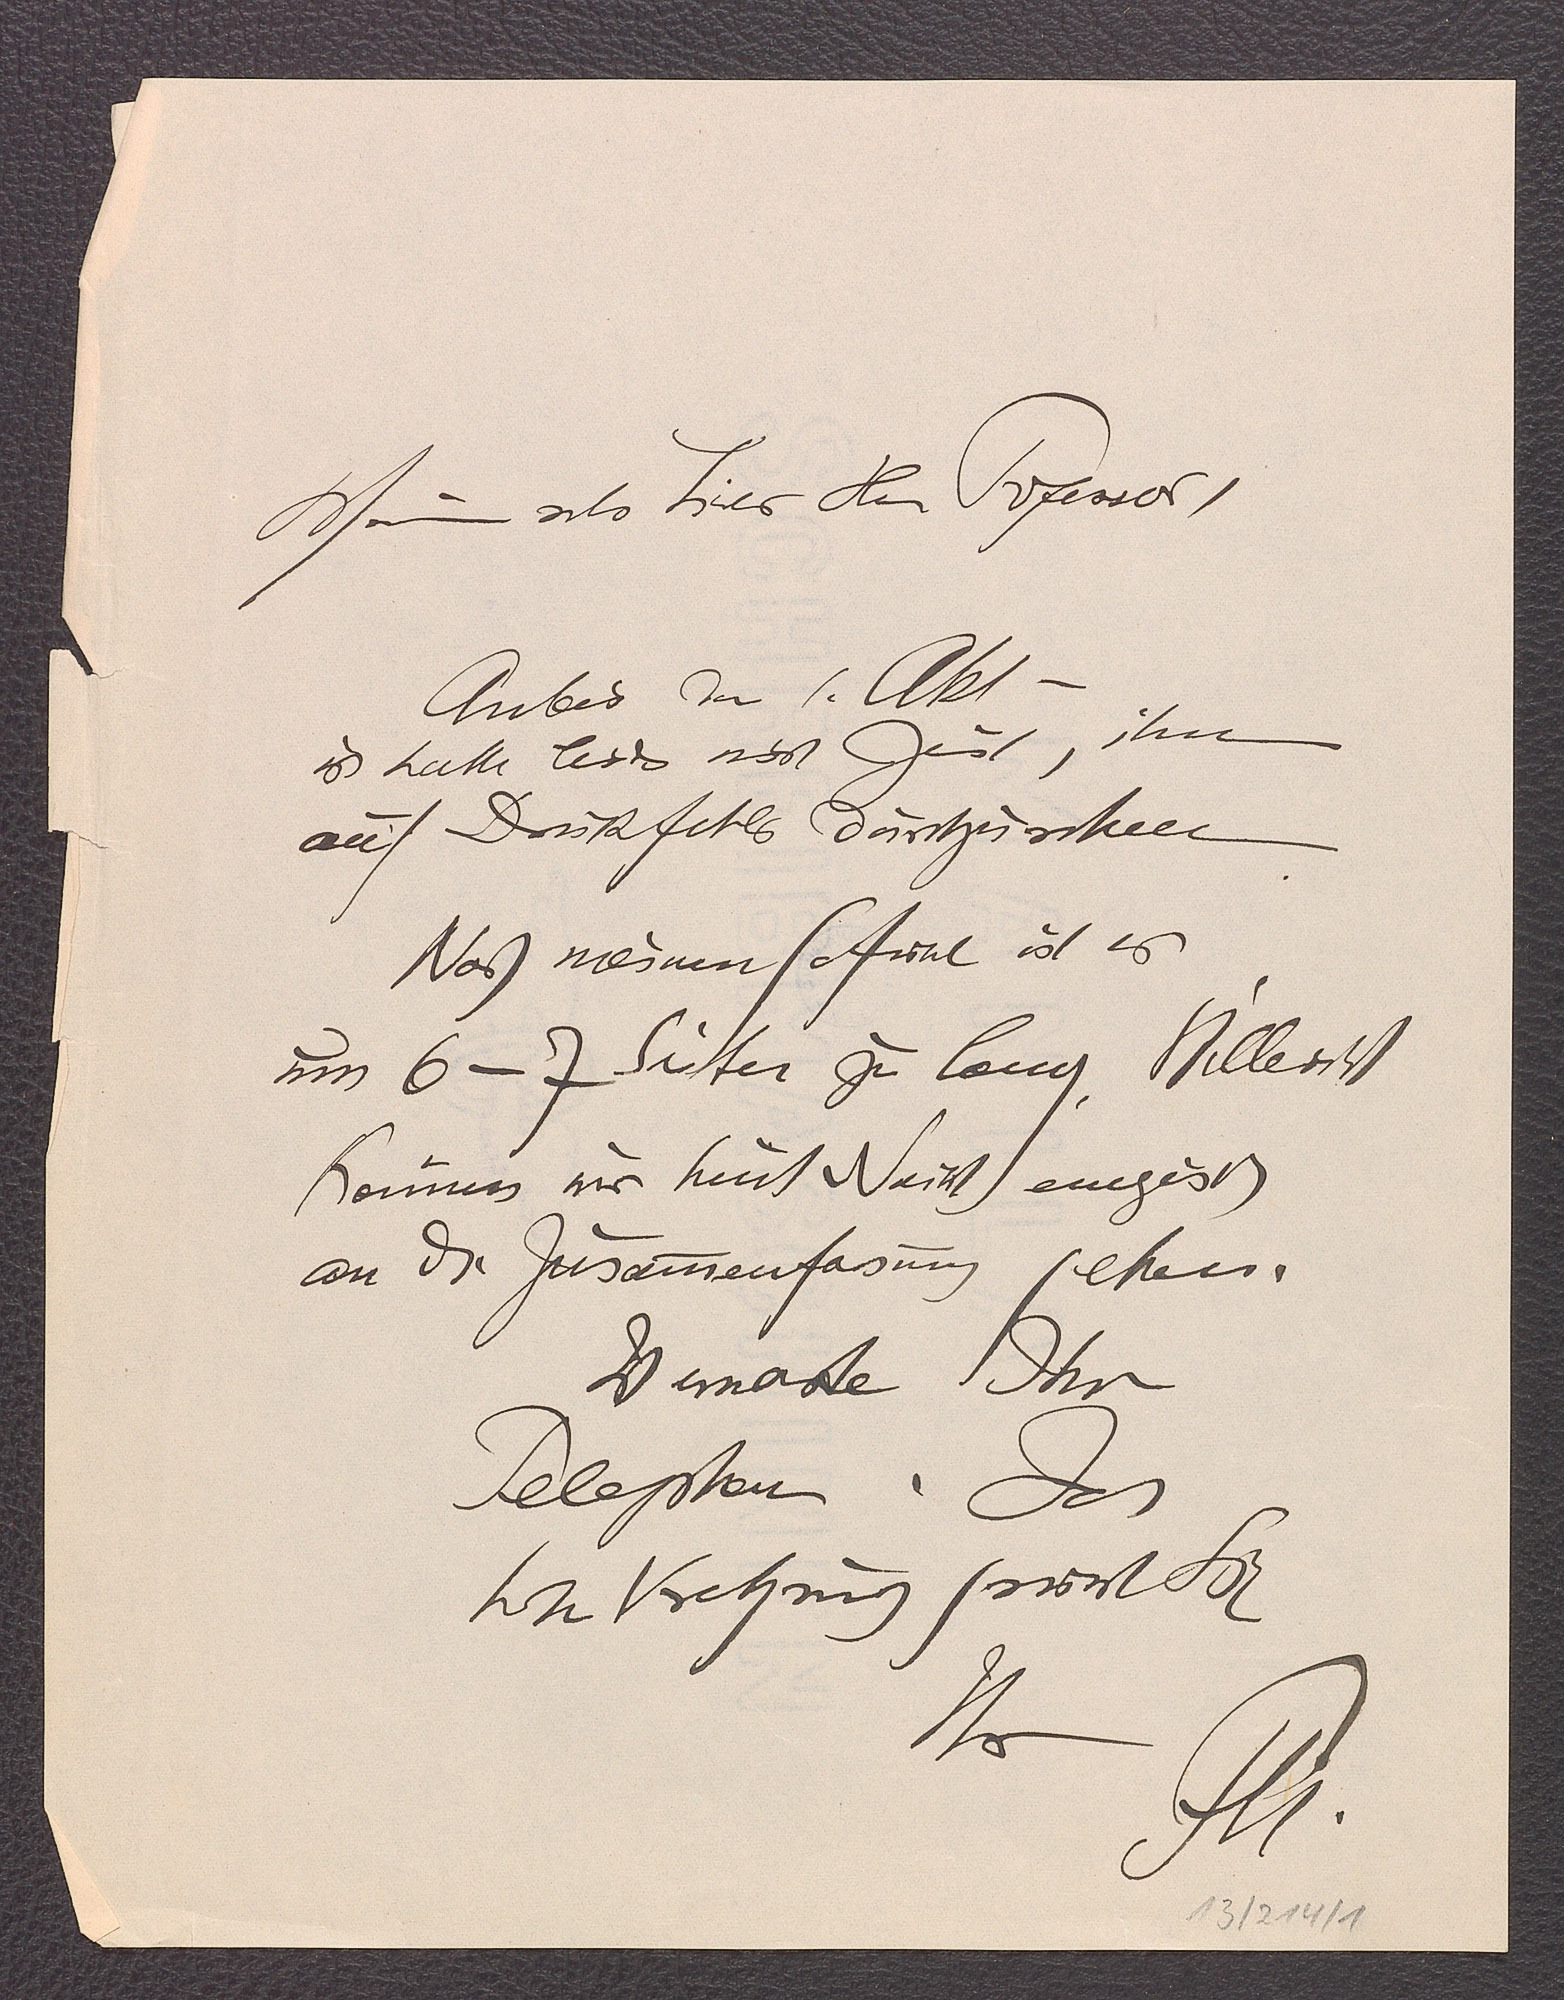 Mein sehr lieber Herr Professor,
Anbei der 1. Akt –
ich hatte leider nicht Zeit, ihn
auf Druckfehler durchzusehen
Nach meinem Gefühl ist er
um 6–7 Seiten zu lang. Vielleicht
können wir heut Nacht energisch
an die Zusammenfassung gehen.
Ich erwarte Ihr
Telephon. In
hoher Verehrung grüsst Sie
Ihr
13/214/1